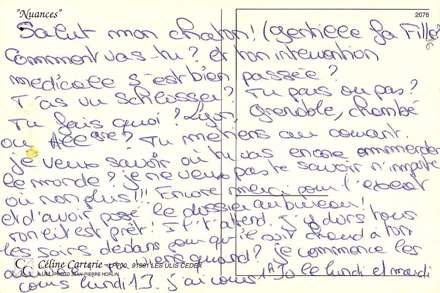 "Nuances"
2076
Salut mon chaton! (gentille la fille)
Comment vas-tu? et ton intervention
medicale s'est bien passée?
T'as vu Schleisser? Tu pars ou pas?
Tu fais quoi? Lyon, Grenoble, chambé
ou Alsace? Tu me tiens au courant.
je veux savoir où tu vas encore emmerder
le monde? je ne veux pas te savoir n'importe
où non plus!!! Encore merci pour l'exeat
et d'avoir posé le dossier au bureau!
ton lit est prêt! Il t'attend. J'y dors tous
les soirs dedans pour qu'il soit chaud à ton
quand? je commence les
cours lundi 13. j'ai cours 1h30 le lundi et mardi
C Céline Carterie - BP 200 91961 LES ULIS CEDEX